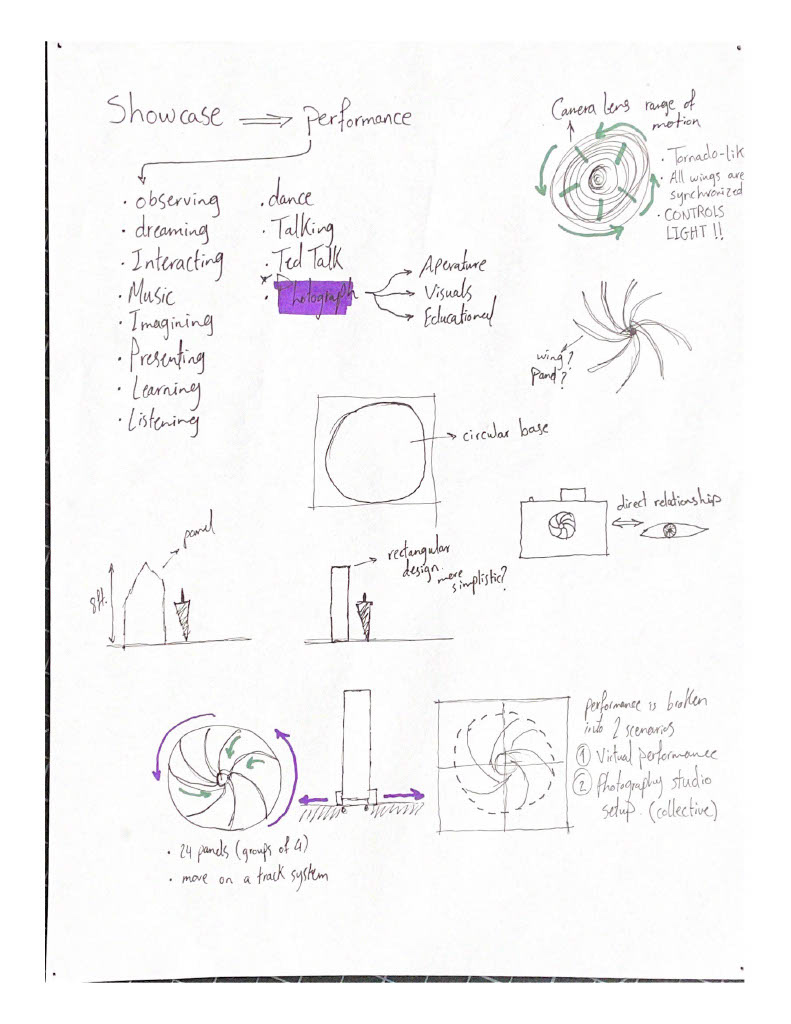 Showcase ⇒ performance
· observing
· dreaming
· Interacting
· Music
· Imagining
· Presenting
· Learning
· Listening
· dance
· Talking
· Ted Talk
* · Photograph
Aperature
Visuals
Educational
Camera Lens range of
motion
· Tornado-lik
· All wings are
synchronized
· CONTROLS
LIGHT !!
wing?
Panel?
circular base
direct relationship
panel
8ft.
rectangular
design.
more
simplistic?
performance is broken
into 2 scenarios
① Virtual performance
② Photography studio
setup. (collective)
· 24 panels (groups of 4)
· move on a track system